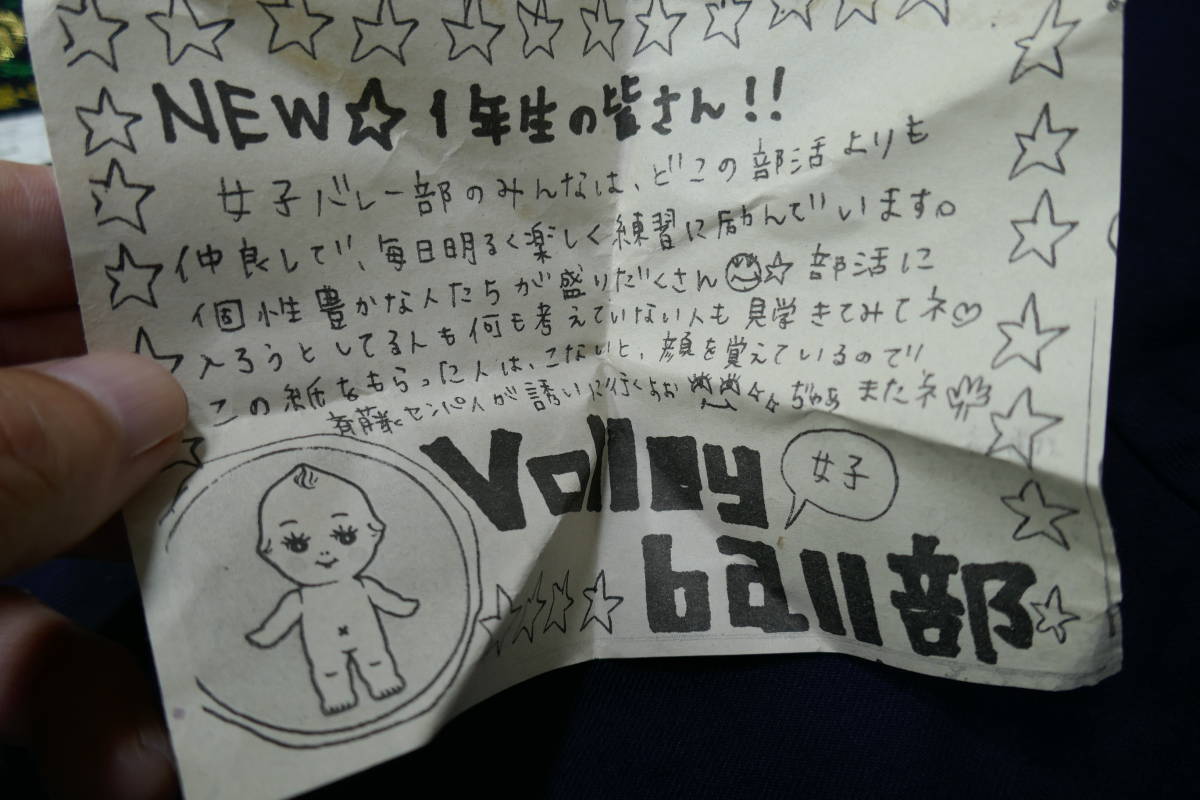 NEW☆1年生の皆さん!!
女子バレー部のみんなは、どこの部活よりも
仲良しで、毎日明るく楽しく練習に励んでいます。
個性豊かな人たちが盛りだくさん☆部活に
入ろうとしてる人も何も考えていない人も見学きてみてネ♡
この紙をもらった人は、こないと、顔を覚えているので!!
斉藤センパイが誘いに行くよぉ ぢゃぁ またネ
Volley
女子
ball部